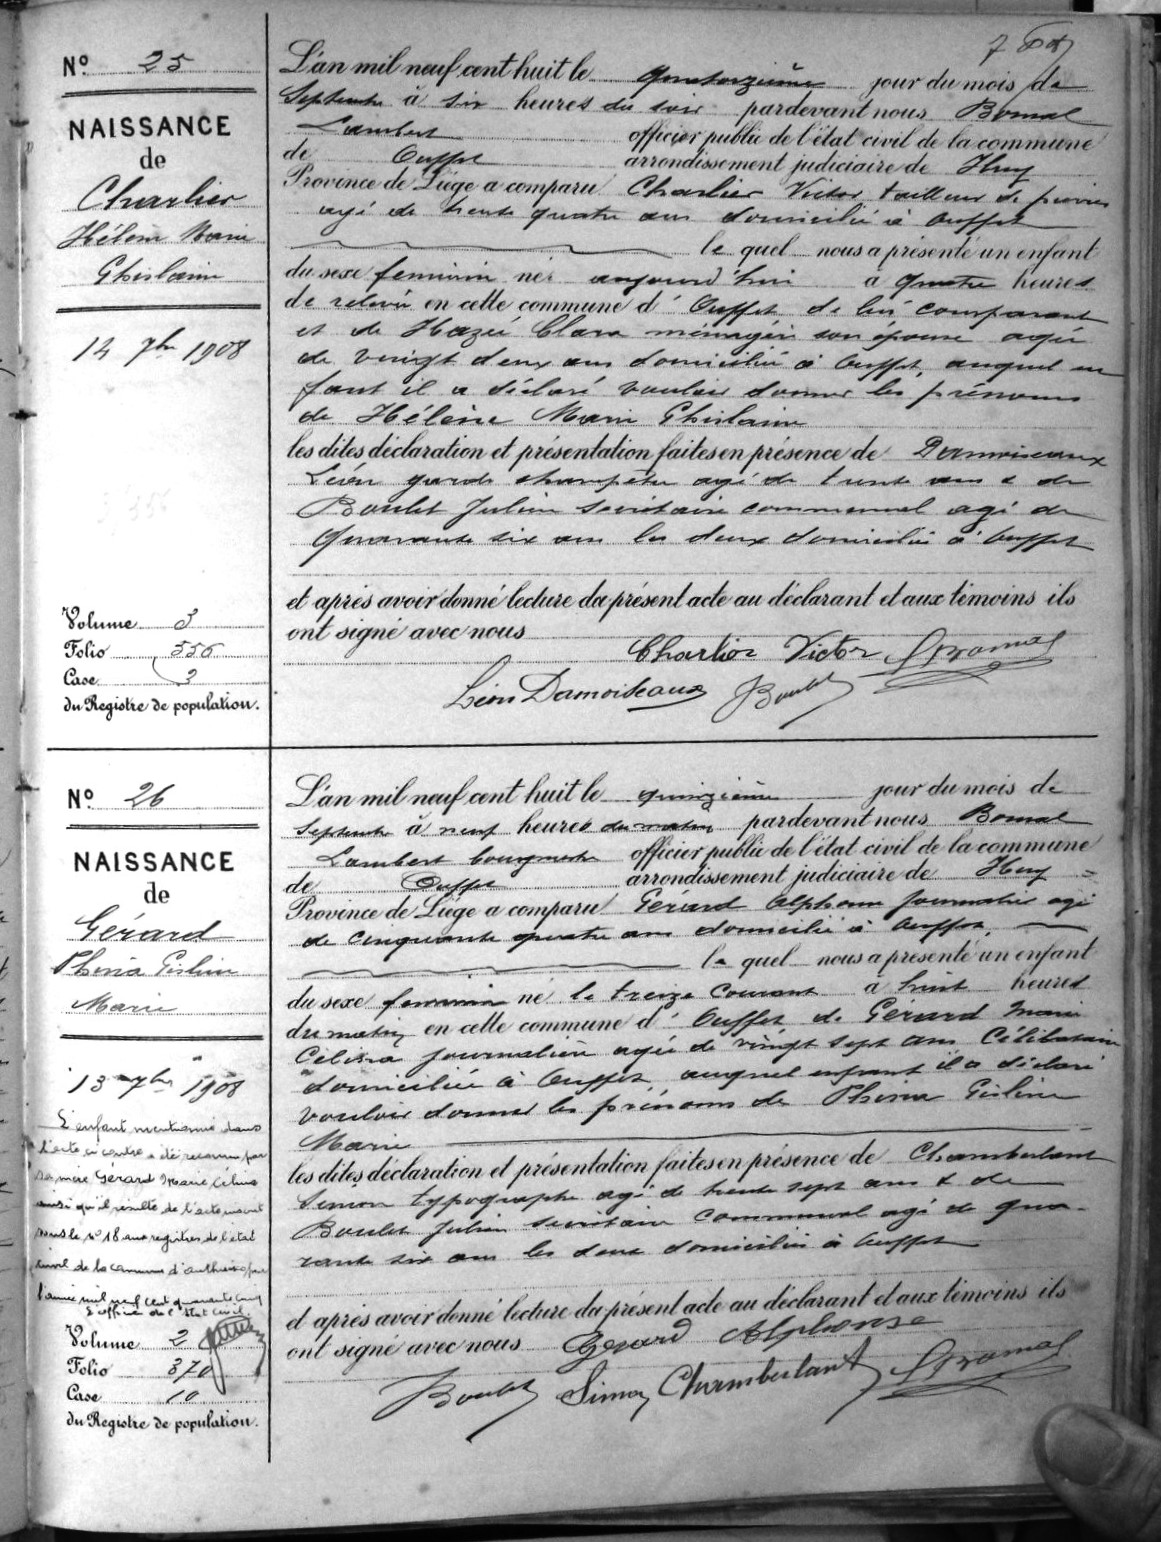 7
Nº 25
NAISSANCE
de
Charlier
Hélène Marie
Ghislaine
14 7bre 1908
Volume 3
Folio 556
Case 3
du Registre de population.
L'an mil neuf cent huit le quatorzième jour du mois de
Septembre à six heures du soir pardevant nous Bomal
Lambert officier public de l'état civil de la commune
de Ouffet arrondissement judiciaire de Huy
Province de Liége a comparu Charlier Victor tailleur de pierres
agé de trente quatre ans domicilié à Ouffet
le quel nous a présenté un enfant
du sexe feminin né aujourd'hui à quatre heures
de relevée en cette commune d'Ouffet de lui comparant
et de Hazée Clara ménagère son épouse agée
de vingt deux ans domiciliée à Ouffet, auquel en
fant il a déclaré vouloir donner les prénoms
de Hélène Marie Ghislaine
les dites déclaration et présentation faites en présence de Damoiseaux
Léon garde champêtre agé de trente ans & de
Boulet Julien secrétaire communal agé de
quarante six ans les deux domiciliés à Ouffet
et après avoir donné lecture du présent acte au déclarant et aux témoins ils
ont signé avec nous
Charlier Victor LBomal
Léon Damoiseaux JBoulet
Nº 26
NAISSANCE
de
Gérard
Phina Gisline
Marie
13 7bre 1908
L'enfant mentionné dans
l'acte ci contre a été reconnu par
sa mère Gérard Marie Célina
ainsi qu'il résulte de l'acte inscrit
sous le nº 18 aux registres de l'état
civil de la commune d'Antheit pour
l'année mil neuf cent quarante cinq
L'officier de l'état civil
Volume 2
Folio 370
Case 10
du Registre de population.
L'an mil neuf cent huit le quinzième jour du mois de
Septembre à neuf heures du matin pardevant nous Bomal
Lambert bourgmestre officier public de l'état civil de la commune
de Ouffet arrondissement judiciaire de Huy
Province de Liége a comparu Gérard Alphonse journalier agé
de cinquante quatre ans domicilié à Ouffet,
le quel nous a présenté un enfant
du sexe feminin né le treize courant à huit heures
du matin en cette commune d'Ouffet de Gérard Marie
Célina journalière agée de vingt sept ans Célibataire
domiciliée à Ouffet auquel enfant il a déclaré
vouloir donner les prénoms de Phina Gisline
Marie
les dites déclaration et présentation faites en présence de Chamberlant
Simon typographe agé de trente sept ans & de
Boulet Julien secrétaire communal agé de qua-
rante six ans les deux domiciliés à Ouffet
et après avoir donné lecture du présent acte au déclarant et aux témoins ils
ont signé avec nous Gerard Alphonse
JBoulet Simon Chamberlant LBomal